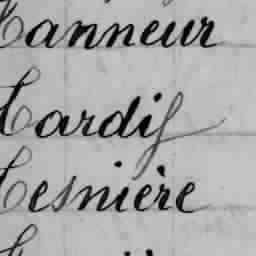 Tanneur
Tardif
Tesnière